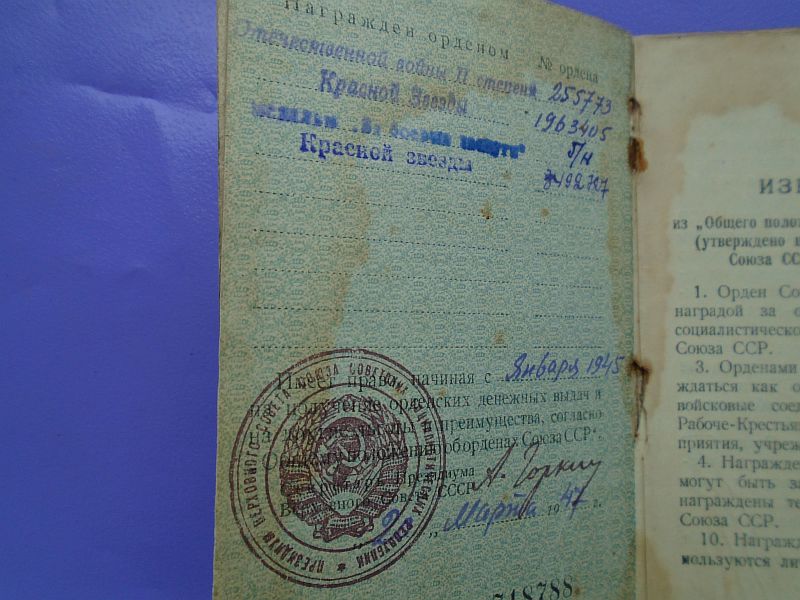 Награжден орденом № ордена
Отечественной войны II степени 255773
Красной Звезды 1963405
медалью „За боевые заслуги“ б/н
Красной звезды 3492727
Имеет право, начиная с Января 1945
на получение орденских денежных выдач и
на льготы и преимущества, согласно
Общего положения об орденах Союза ССР.
Секретарь Президиума
Верховного Совета СССР А. Горкин
Марта 1947 г.
718788
ПРЕЗИДИУМ ВЕРХОВНОГО СОВЕТА СОЮЗА СОВЕТСКИХ СОЦИАЛИСТИЧЕСКИХ РЕСПУБЛИК
ИЗ
из „Общего поло
(утверждено
Союза СС
1. Орден Со
наградой за о
социалистическо
Союза ССР.
3. Орденами
ждаться как о
войсковые сое
Рабоче-Крестья
приятия, учреж
4. Награжде
могут быть за
награждены те
Союза ССР.
10. Награжд
пользуются ли